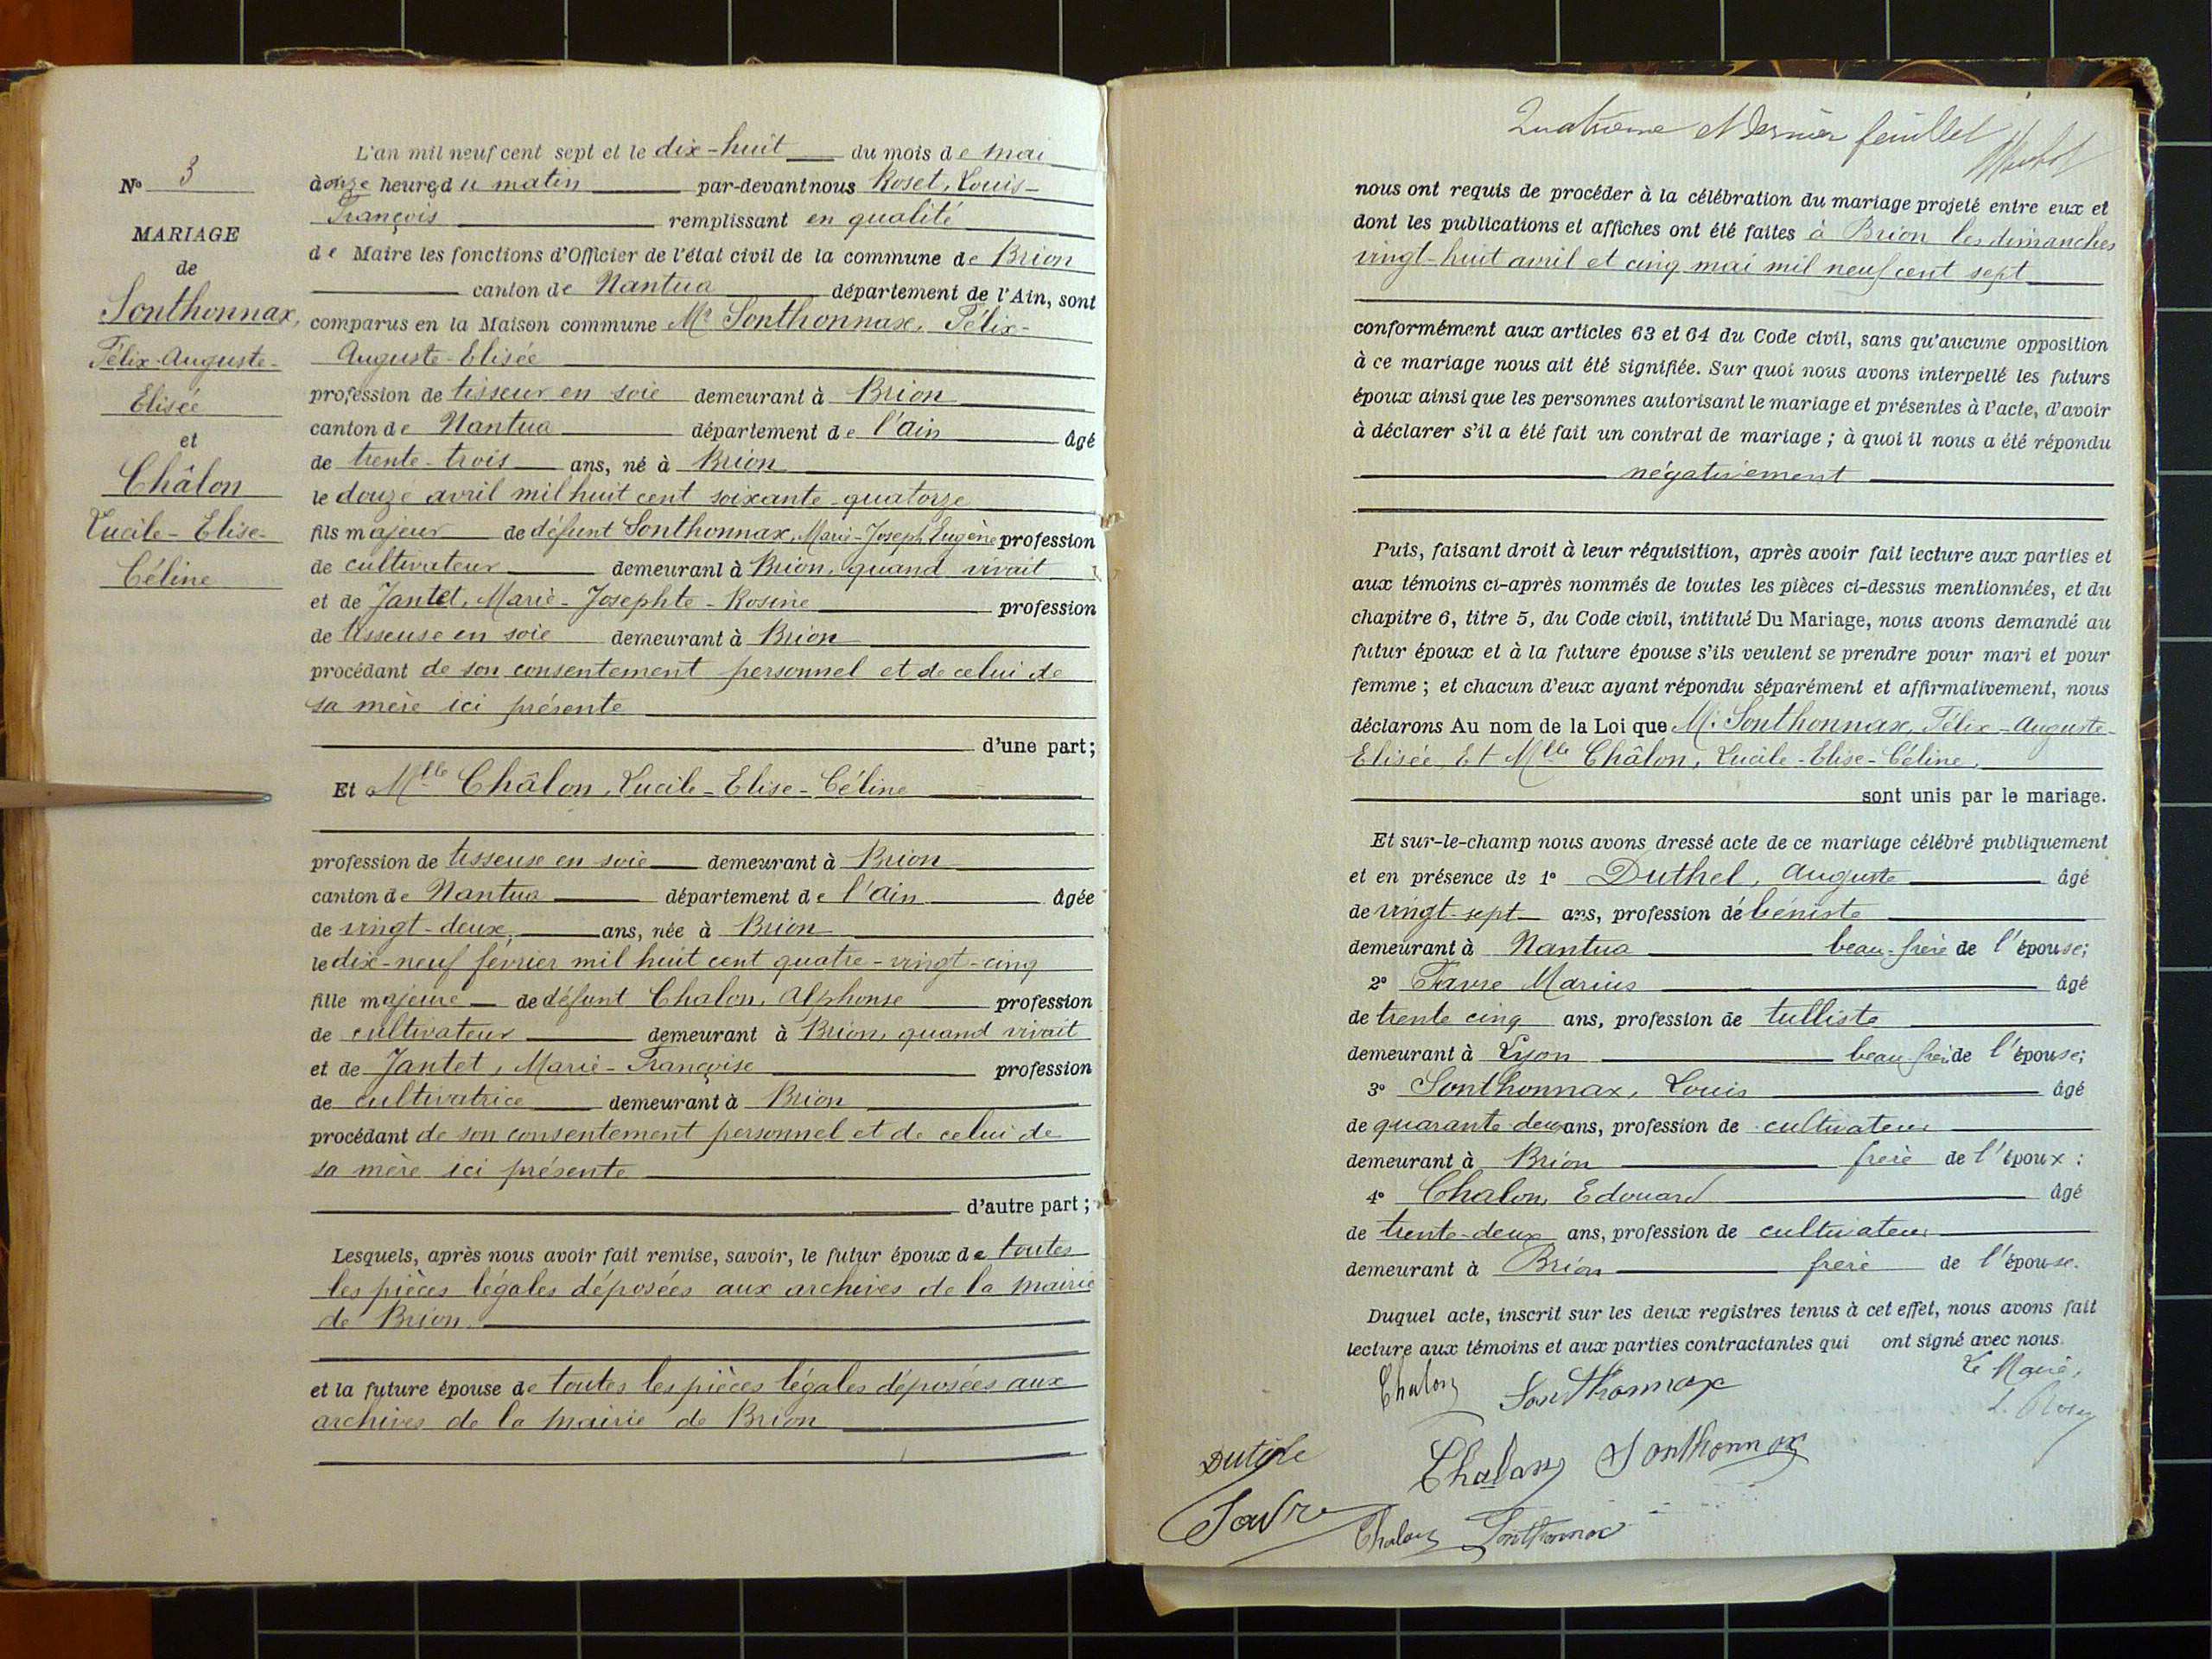 N° 3
MARIAGE
de
Sonthonnax,
Félix-Auguste-
Elisée
et
Châlon
Lucile-Elise-
Céline
L'an mil neuf cent sept et le dix-huit du mois de mai
à onze heures du matin par-devant nous Roset, Louis-
François remplissant en qualité
de Maire les fonctions d'Officier de l'état civil de la commune de Brion
canton de Nantua département de l'Ain, sont
comparus en la Maison commune Mr Sonthonnax, Félix-
Auguste-Elisée
profession de tisseur en soie demeurant à Brion
canton de Nantua département de l'Ain âgé
de trente-trois ans, né à Brion
le douze avril mil huit cent soixante-quatorze
fils majeur de défunt Sonthonnax, Marie-Joseph Eugène profession
de cultivateur demeurant à Brion, quand vivait
et de Jantet, Marie-Josephte-Rosine profession
de tisseuse en soie demeurant à Brion
procédant de son consentement personnel et de celui de
sa mère ici présente
d'une part;
Et Mlle Châlon, Lucile-Elise-Céline
profession de tisseuse en soie demeurant à Brion
canton de Nantua département de l'Ain âgée
de vingt-deux, ans, née à Brion
le dix-neuf février mil huit cent quatre-vingt-cinq
fille majeure de défunt Chalon, Alphonse profession
de cultivateur demeurant à Brion, quand vivait
et de Jantet, Marie-Françoise profession
de cultivatrice demeurant à Brion
procédant de son consentement personnel et de celui de
sa mère ici présente
d'autre part;
Lesquels, après nous avoir fait remise, savoir, le futur époux de toutes
les pièces légales déposées aux archives de la mairie
de Brion.
et la future épouse de toutes les pièces légales déposées aux
archives de la mairie de Brion
Quatrième et dernier feuillet
nous ont requis de procéder à la célébration du mariage projeté entre eux et
dont les publications et affiches ont été faites à Brion les dimanches
vingt-huit avril et cinq mai mil neuf cent sept
conformément aux articles 63 et 64 du Code civil, sans qu'aucune opposition
à ce mariage nous ait été signifiée. Sur quoi nous avons interpellé les futurs
époux ainsi que les personnes autorisant le mariage et présentes à l'acte, d'avoir
à déclarer s'il a été fait un contrat de mariage; à quoi il nous a été répondu
négativement
Puis, faisant droit à leur réquisition, après avoir fait lecture aux parties et
aux témoins ci-après nommés de toutes les pièces ci-dessus mentionnées, et du
chapitre 6, titre 5, du Code civil, intitulé Du Mariage, nous avons demandé au
futur époux et à la future épouse s'ils veulent se prendre pour mari et pour
femme; et chacun d'eux ayant répondu séparément et affirmativement, nous
déclarons Au nom de la Loi que Mr Sonthonnax, Félix-Auguste-
Elisée, Et Mlle Châlon, Lucile-Elise-Céline,
sont unis par le mariage.
Et sur-le-champ nous avons dressé acte de ce mariage célébré publiquement
et en présence de 1° Duthel, Auguste âgé
de vingt-sept ans, profession débéniste
demeurant à Nantua beau-frère de l'épouse;
2° Favre Marius âgé
de trente cinq ans, profession de tulliste
demeurant à Lyon beau frè de l'épouse;
3° Sonthonnax, Louis âgé
de quarante-deux ans, profession de cultivateur
demeurant à Brion frère de l'époux;
4° Chalon, Edouard âgé
de trente-deux ans, profession de cultivateur
demeurant à Brion frère de l'épouse.
Duquel acte, inscrit sur les deux registres tenus à cet effet, nous avons fait
lecture aux témoins et aux parties contractantes qui ont signé avec nous.
Le Maire,
Chalon Sonthonnax
Chalon Sonthonnax
Favre Chalon Sonthonnax